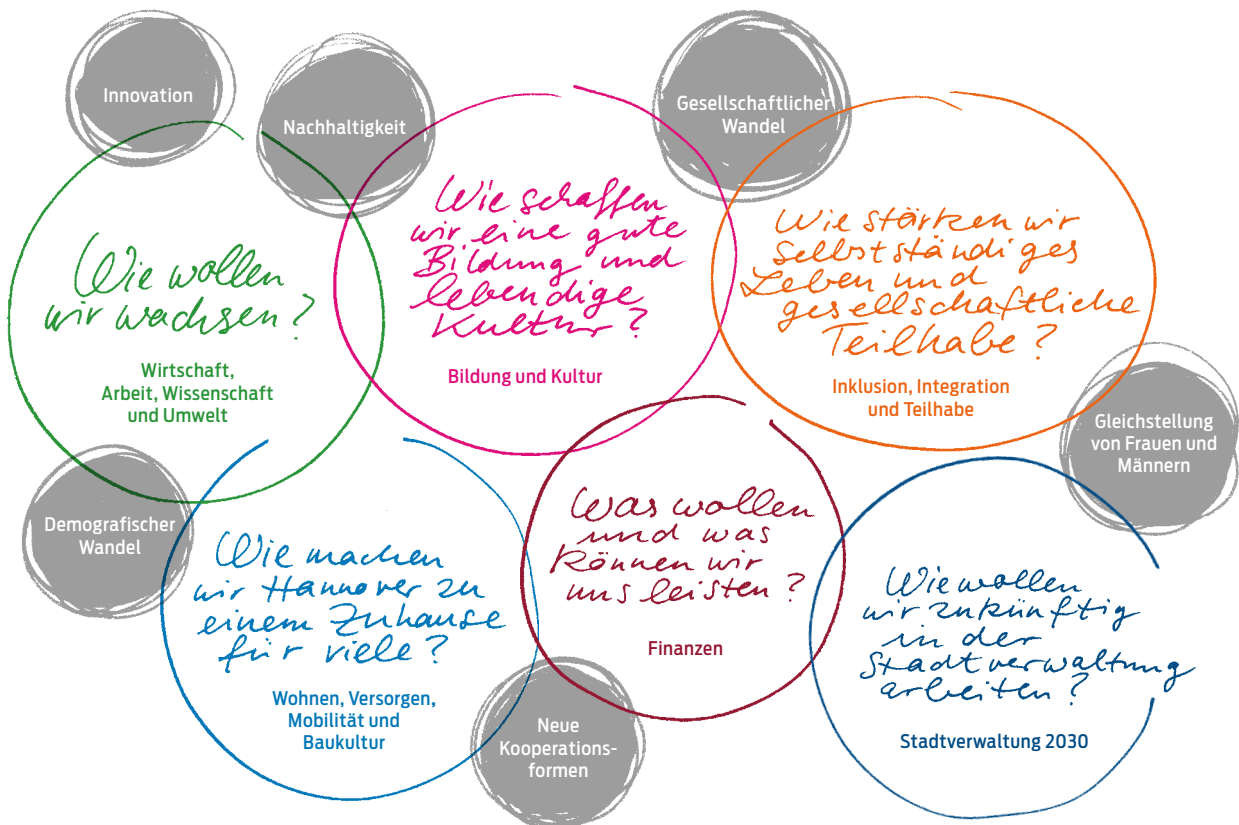 Innovation
Nachhaltigkeit
Gesellschaftlicher
Wandel
Wie wollen
wir wachsen?
Wirtschaft,
Arbeit, Wissenschaft
und Umwelt
Wie schaffen
wir eine gute
Bildung und
lebendige
Kultur?
Bildung und Kultur
Wie stärken wir
selbstständiges
Leben und
gesellschaftliche
Teilhabe?
Inklusion, Integration
und Teilhabe
Gleichstellung
von Frauen und
Männern
Demografischer
Wandel
Wie machen
wir Hannover zu
einem Zuhause
für viele?
Wohnen, Versorgen,
Mobilität und
Baukultur
Neue
Kooperations-
formen
Was wollen
und was
können wir
uns leisten?
Finanzen
Wie wollen
wir zukünftig
in der
Stadtverwaltung
arbeiten?
Stadtverwaltung 2030